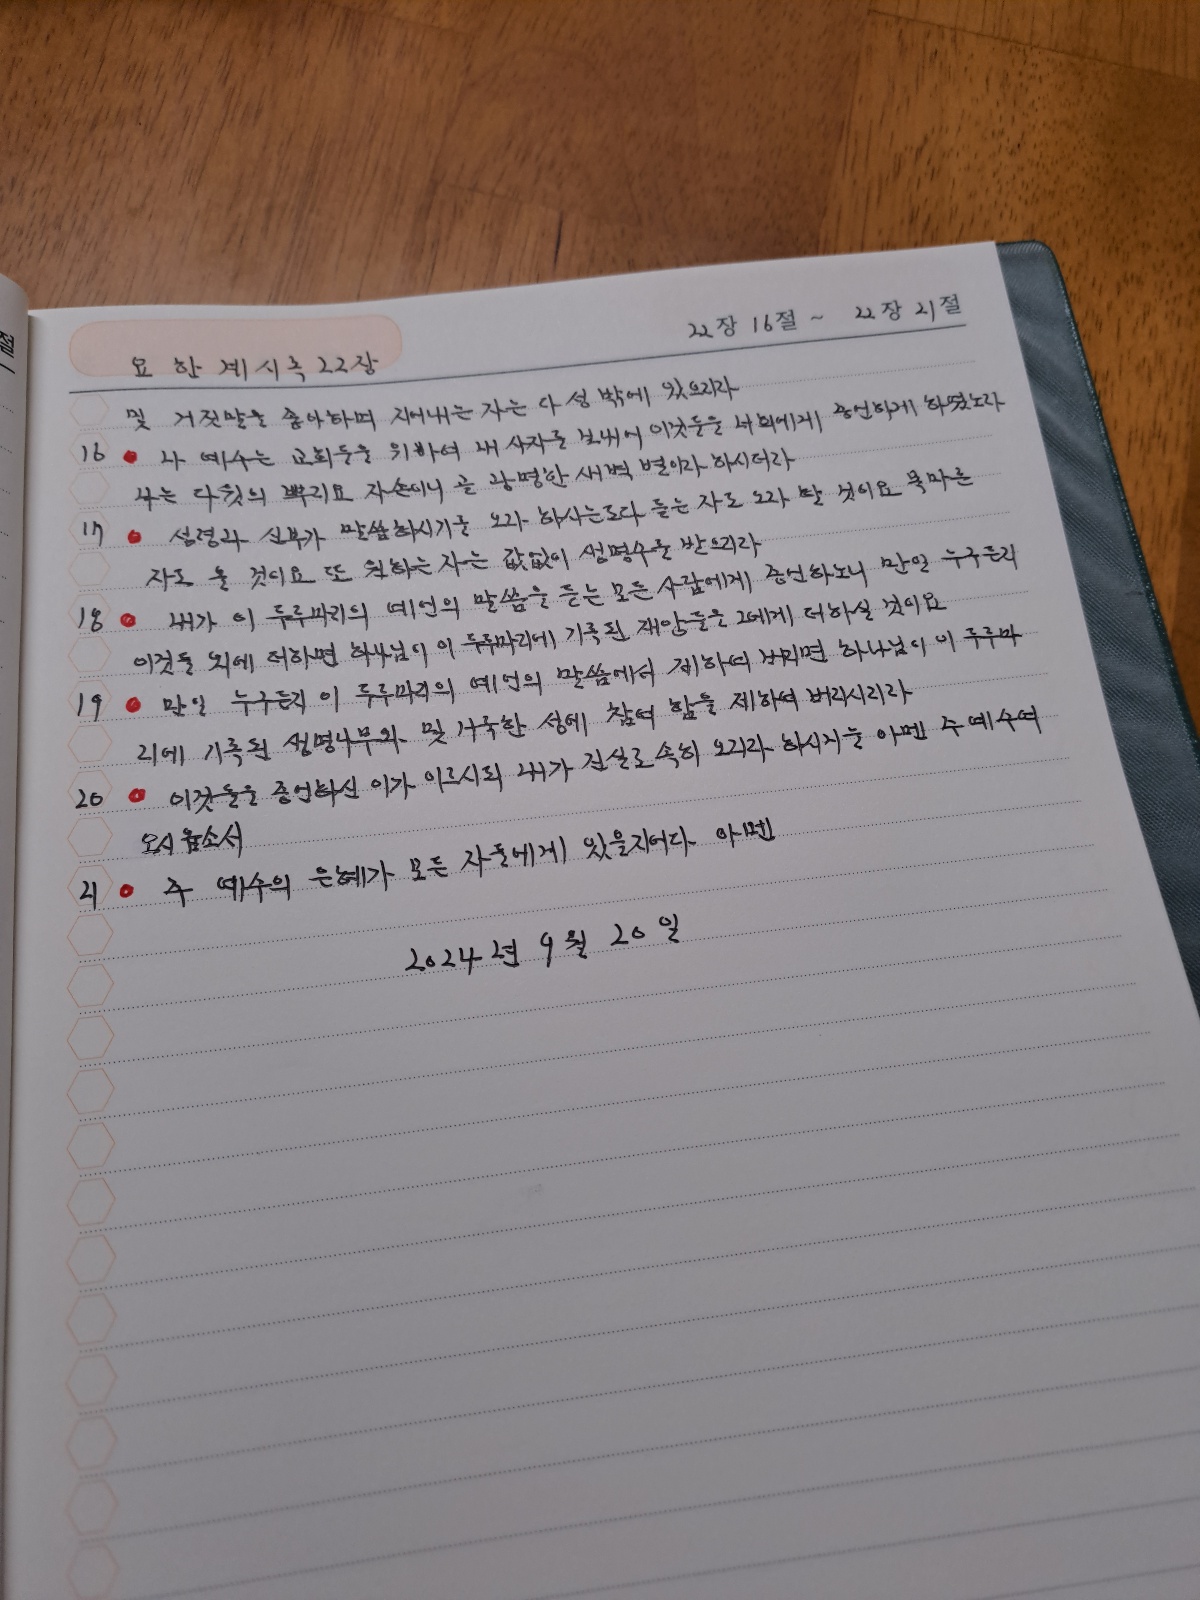 절
요한계시록 22장
22장 16절 ~ 22장 21절
및 거짓말을 좋아하며 지어내는 자는 다 성 밖에 있으리라
16 나 예수는 교회들을 위하여 내 사자를 보내어 이것들을 너희에게 증언하게 하였노라
나는 다윗의 뿌리요 자손이니 곧 광명한 새벽 별이라 하시더라
17 성령과 신부가 말씀하시기를 오라 하시는도다 듣는 자도 오라 할 것이요 목마른
자도 올 것이요 또 원하는 자는 값없이 생명수를 받으리라
18 내가 이 두루마리의 예언의 말씀을 듣는 모든 사람에게 증언하노니 만일 누구든지
이것들 외에 더하면 하나님이 이 두루마리에 기록된 재앙들을 그에게 더하실 것이요
19 만일 누구든지 이 두루마리의 예언의 말씀에서 제하여 버리면 하나님이 이 두루마
리에 기록된 생명나무와 및 거룩한 성에 참여 함을 제하여 버리시리라
20 이것들을 증언하신 이가 이르시되 내가 진실로 속히 오리라 하시거늘 아멘 주 예수여
오시옵소서
21 주 예수의 은혜가 모든 자들에게 있을지어다 아멘
2024년 9월 20일